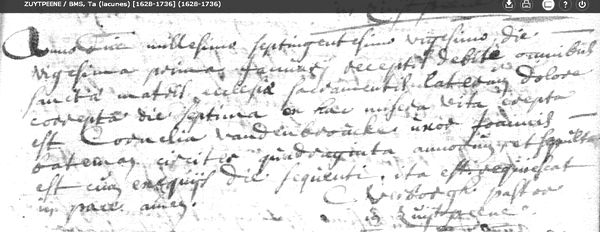 ZUYTPEENE / BMS, Ta (lacunes) [1628-1736] (1628-1736)
Anno Dni millesimo septingentesimo vigesimo die
vigesima prima Januarii receptis debite omnibus
sanctæ matris ecclesiæ sacramentis lateram dolore
correpta die septima ex hac misera vita erepta
est Cornelia Vandenbroucke uxor Joannis
Bateman circiter quadraginta annorum et sepulta
est cum exequiis die sequenti. ita est. requiescat
in pace amen. pastor
in Zuytpeene